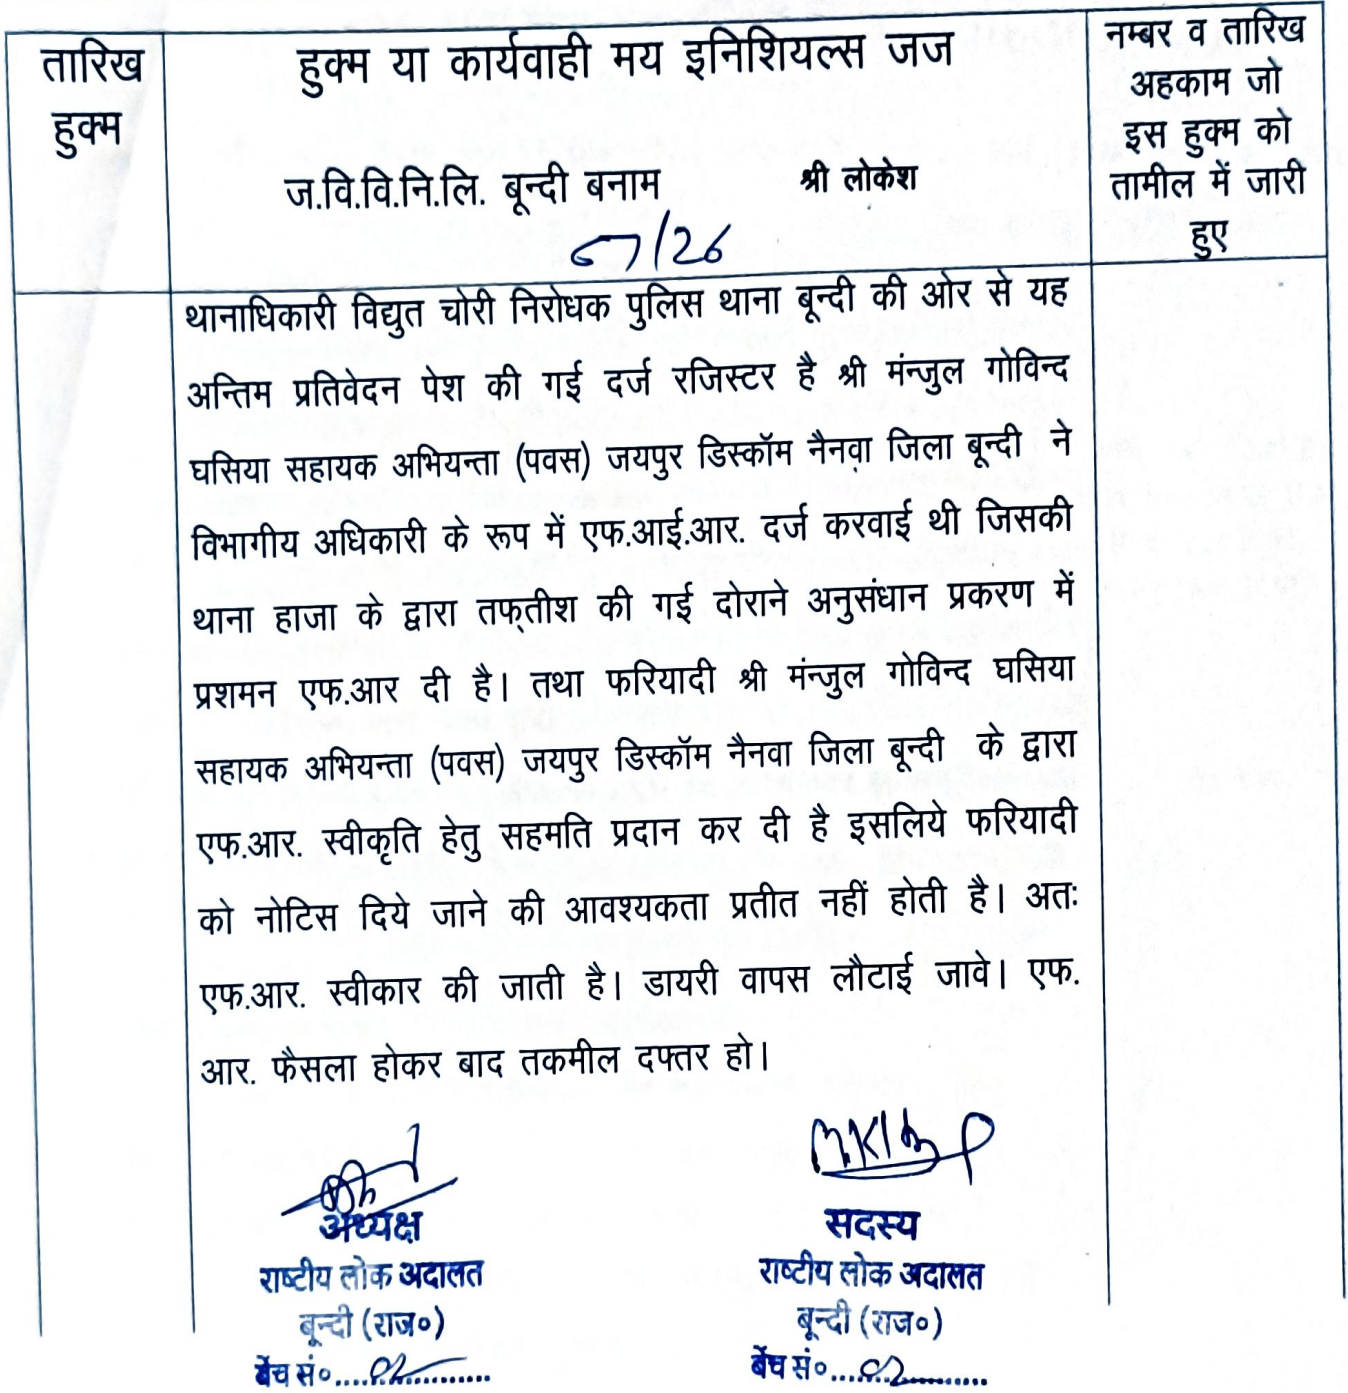 तारिख
हुक्म
हुक्म या कार्यवाही मय इनिशियल्स जज
ज.वि.वि.नि.लि. बून्दी बनाम श्री लोकेश
67/26
नम्बर व तारिख
अहकाम जो
इस हुक्म को
तामील में जारी
हुए
थानाधिकारी विद्युत चोरी निरोधक पुलिस थाना बून्दी की ओर से यह
अन्तिम प्रतिवेदन पेश की गई दर्ज रजिस्टर है श्री मंन्जुल गोविन्द
घसिया सहायक अभियन्ता (पवस) जयपुर डिस्कॉम नैनवा जिला बून्दी ने
विभागीय अधिकारी के रूप में एफ.आई.आर. दर्ज करवाई थी जिसकी
थाना हाजा के द्वारा तफ्तीश की गई दोराने अनुसंधान प्रकरण में
प्रशमन एफ.आर दी है। तथा फरियादी श्री मंन्जुल गोविन्द घसिया
सहायक अभियन्ता (पवस) जयपुर डिस्कॉम नैनवा जिला बून्दी के द्वारा
एफ.आर. स्वीकृति हेतु सहमति प्रदान कर दी है इसलिये फरियादी
को नोटिस दिये जाने की आवश्यकता प्रतीत नहीं होती है। अतः
एफ.आर. स्वीकार की जाती है। डायरी वापस लौटाई जावे। एफ.
आर. फैसला होकर बाद तकमील दफ्तर हो।
अध्यक्ष
राष्टीय लोक अदालत
बून्दी (राज०)
बेंच सं०....02..............
सदस्य
राष्टीय लोक अदालत
बून्दी (राज०)
बेंच सं०....02..............